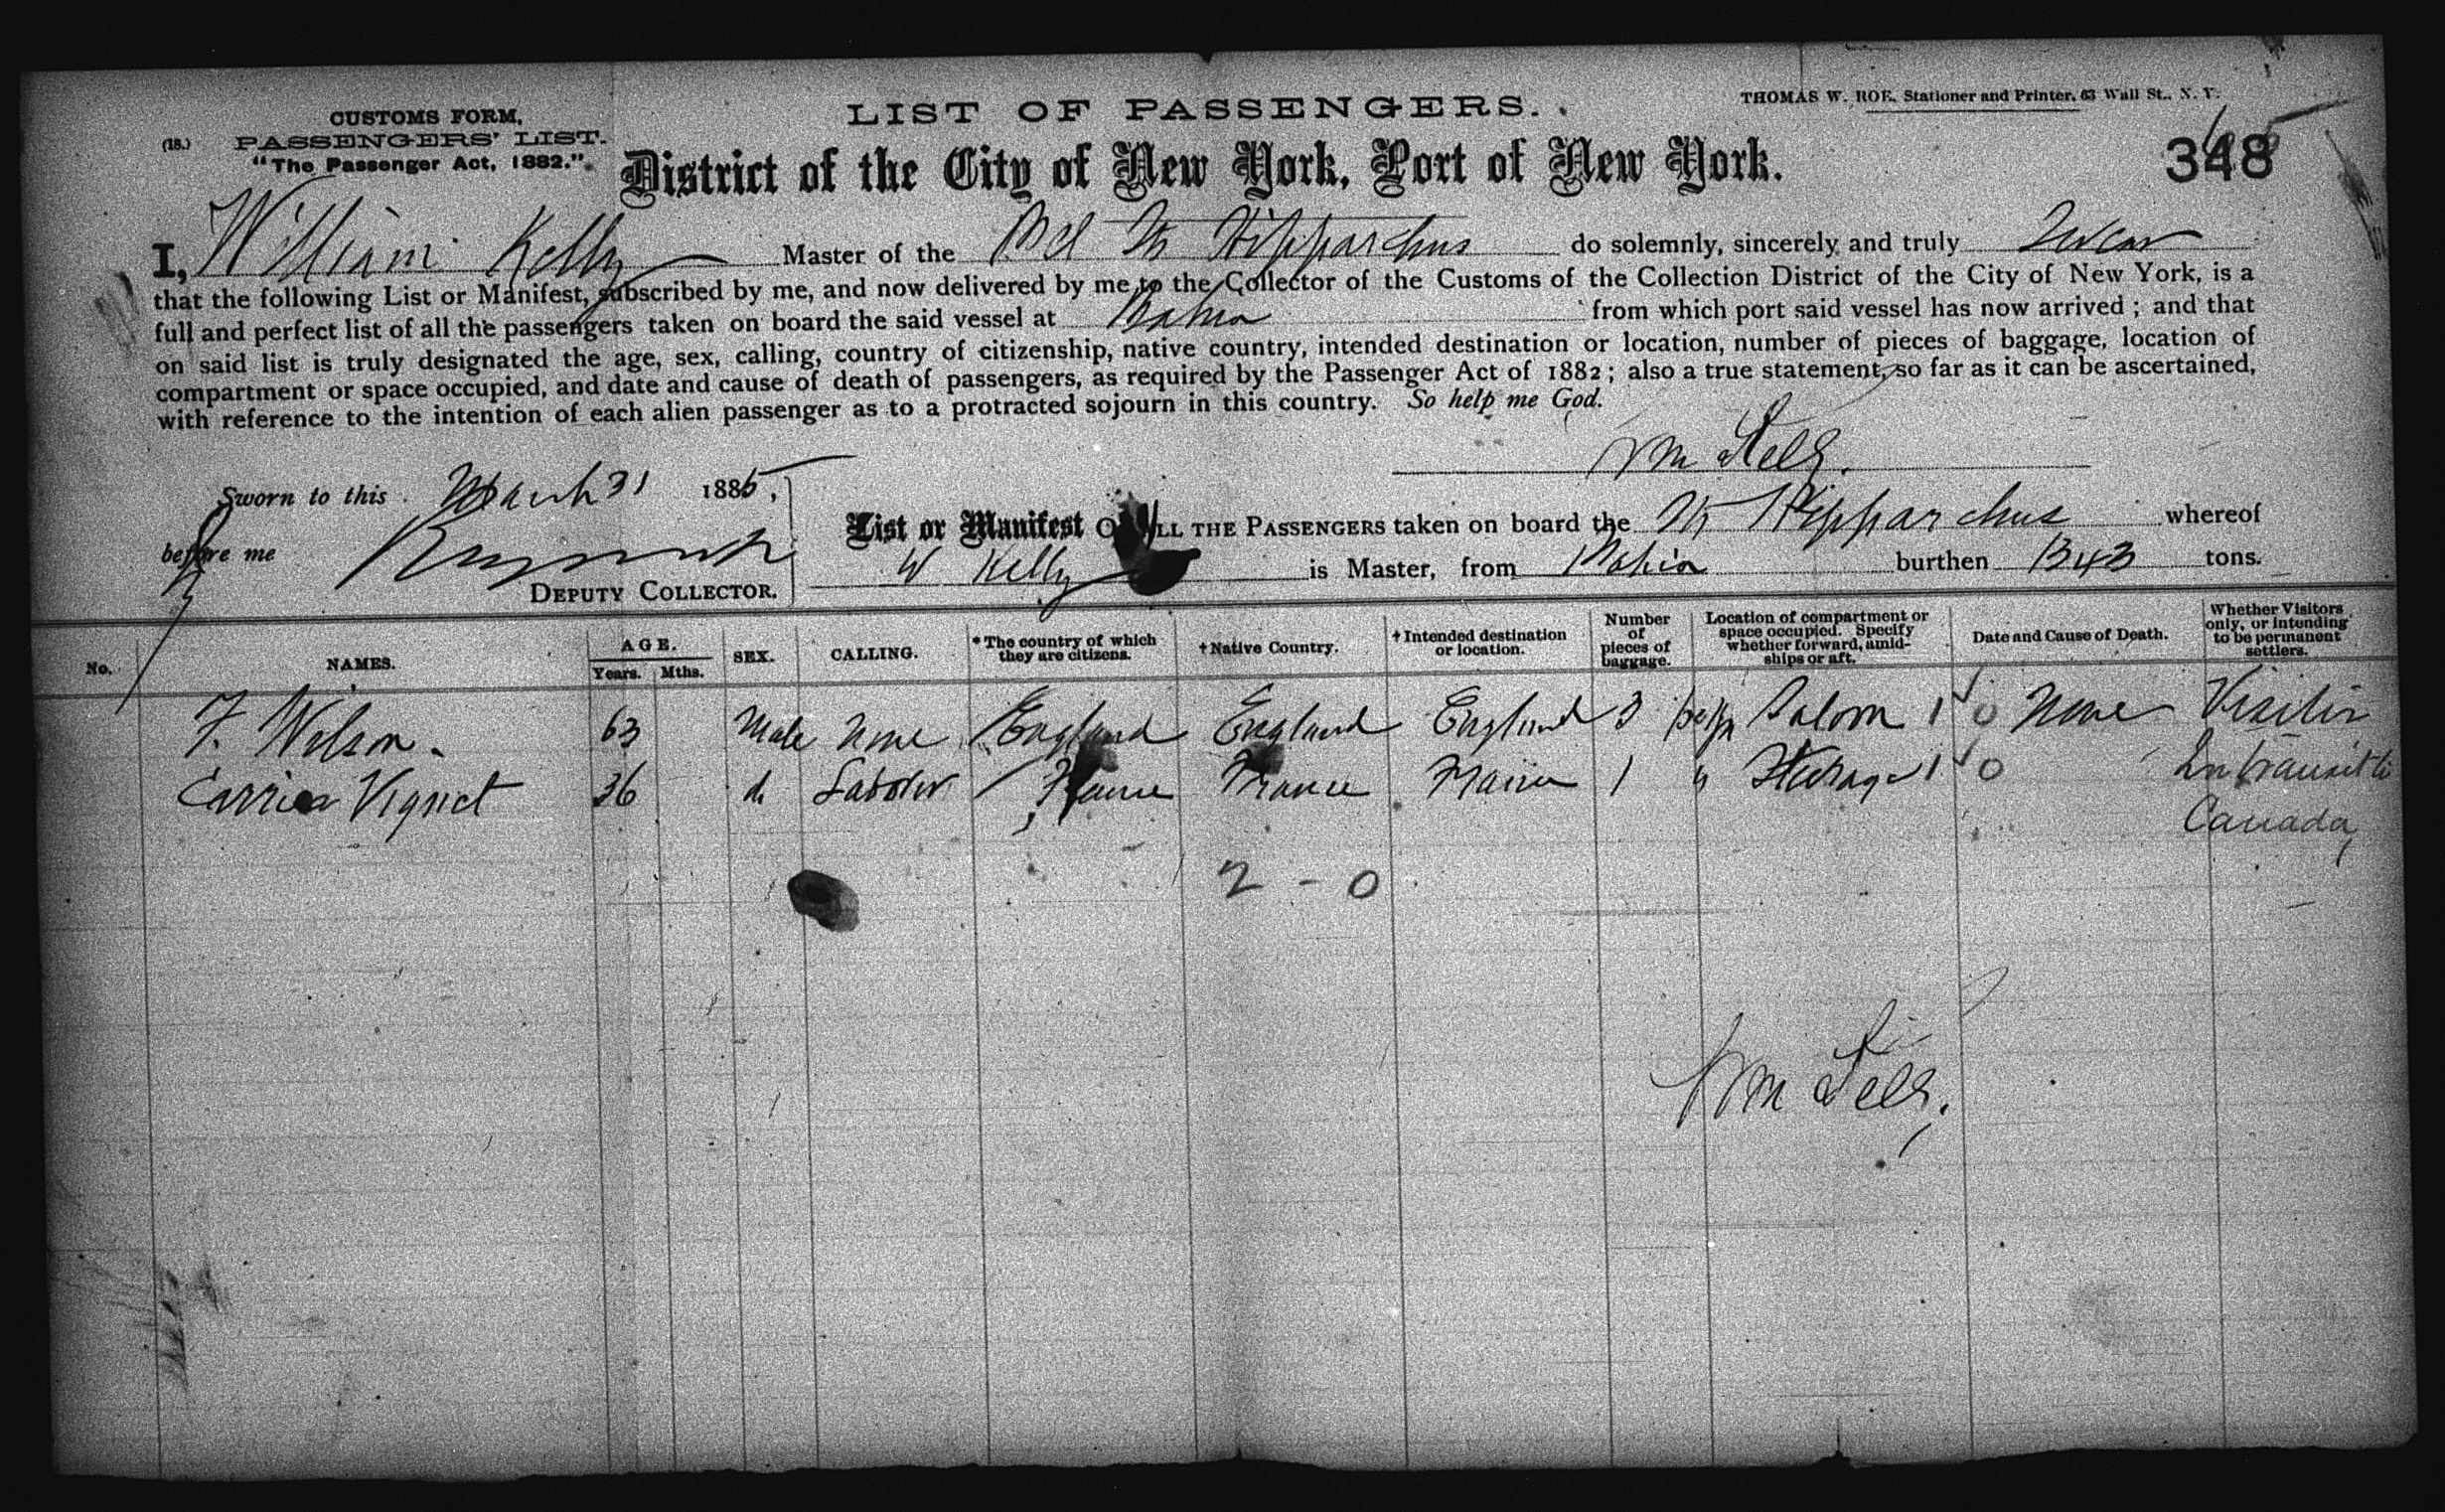 CUSTOMS FORM,
(18.) PASSENGERS' LIST.
"The Passenger Act, 1882."
LIST OF PASSENGERS.
THOMAS W. ROE, Stationer and Printer, 63 Wall St., N. Y.
District of the City of New York, Port of New York.
348
I, William Kelly Master of the Hipparchus do solemnly, sincerely and truly Swear
that the following List or Manifest, subscribed by me, and now delivered by me to the Collector of the Customs of the Collection District of the City of New York, is a
full and perfect list of all the passengers taken on board the said vessel at Bahia from which port said vessel has now arrived; and that
on said list is truly designated the age, sex, calling, country of citizenship, native country, intended destination or location, number of pieces of baggage, location of
compartment or space occupied, and date and cause of death of passengers, as required by the Passenger Act of 1882; also a true statement, so far as it can be ascertained,
with reference to the intention of each alien passenger as to a protracted sojourn in this country. So help me God.
Wm Kelly
Sworn to this March 31 1885,
before me
DEPUTY COLLECTOR.
List or Manifest OF ALL THE PASSENGERS taken on board the Hipparchus whereof
W Kelly is Master, from Bahia burthen 1343 tons.
No. NAMES. AGE. Years. Mths. SEX. CALLING. *The country of which they are citizens. †Native Country. †Intended destination or location. Number of pieces of baggage. Location of compartment or space occupied. Specify whether forward, amidships or aft. Date and Cause of Death. Whether Visitors only, or intending to be permanent settlers.
F. Wilson. 63 Male None England England England 3 Saloon 1 0 None Visitor
Vignet 36 do Laborer France France 1 " Steerage 1 0 In transit to
Canada
2 - 0
Wm Kelly